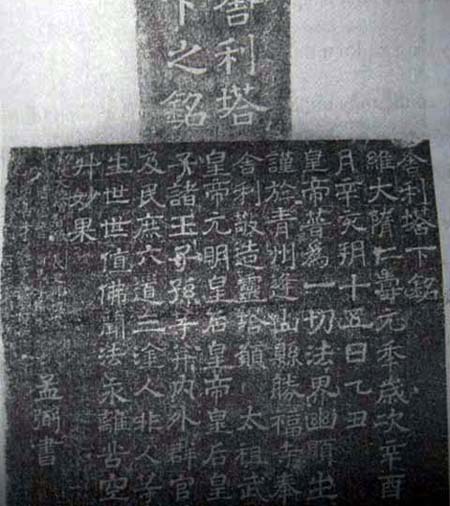 舍利塔
下之銘
舍利塔下銘
維大隋仁壽元年歲次辛酉
月辛亥朔十五日乙丑
皇帝普為一切法界幽顯生
謹於青州逢山縣勝福寺奉
舍利敬造靈塔願 太祖武
皇帝元明皇后皇帝皇后皇
子諸王子孫等并內外群官
及民庶六道三途人非人等
生世世值佛聞法永離苦空
升妙果
孟弼書